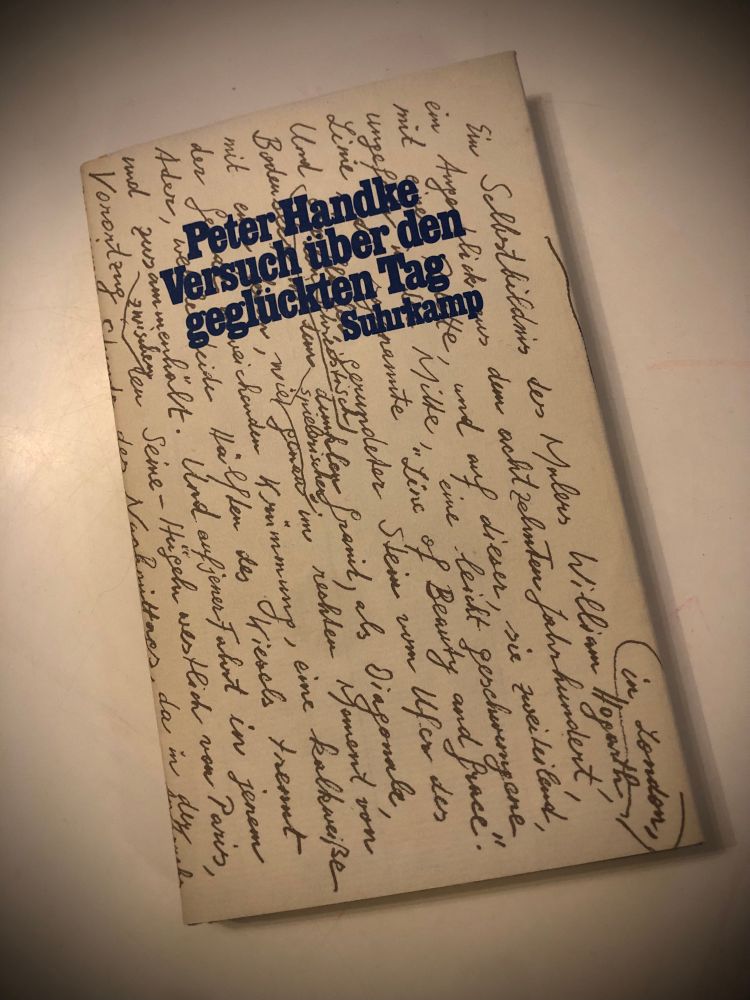 Peter Handke
Versuch über den
geglückten Tag
Suhrkamp
Ein Selbstbildnis des Malers William Hogarth, in London,
ein Augenblick aus dem achtzehnten Jahrhundert,
mit Palette, und auf dieser, sie zweiteilend,
ungefähr Mitte, eine leicht geschwungene
Linie „Line of Beauty and Grace".
Und gerundeter Stein vom Ufer des
Bodensees dem dunklen Granit, als Diagonale,
mit wie genau im rechten Moment von
spielerischen
der abweichenden Krümmung, eine kalkweiße
Ader, beide Hälften des Kiesels trennt
und zusammenhält. Und auf jener Fahrt in jenem
Vorortzug zwischen Seine-Hügeln westlich von Paris,
des Nachmittags, da in der